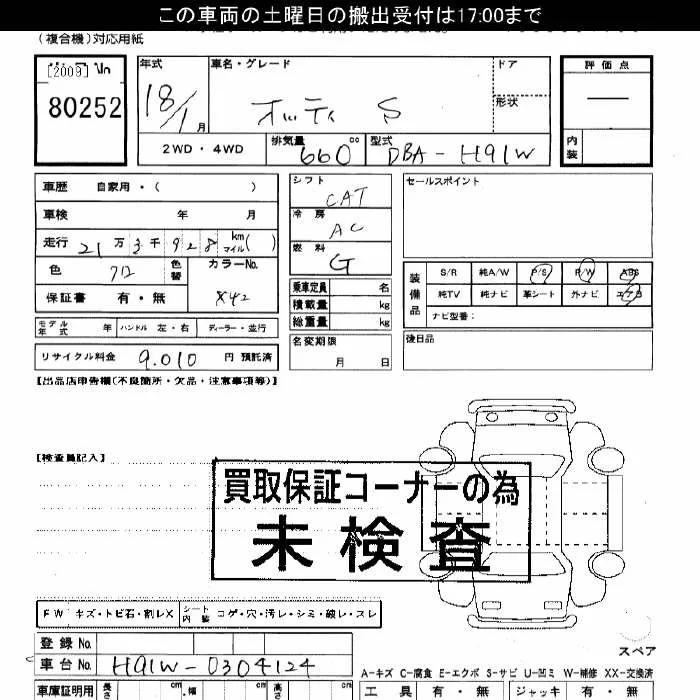 この車両の土曜日の搬出受付は17:00まで
(複合機)対応用紙
[2009]
80252
年式
18/1月
車名・グレード
オッティ S
ドア
形状
評価点
内装
2WD・4WD
排気量 660 cc
型式 DBA-H91W
車歴 自家用・( )
車検 年 月
走行 21万3千928 km マイル( )
色 クロ
色替
カラーNo. X42
保証書 有・無
モデル年式 年 ハンドル 左・右 ディーラー・並行
リサイクル料金 9,010 円 預託済
シフト CAT
冷房 AC
燃料 G
乗車定員 名
積載量 kg
総重量 kg
名変期限 月 日
セールスポイント
装備品
S/R 純A/W P/S P/W ABS
純TV 純ナビ 革シート 外ナビ エアB
ナビ型番:
後日品
【出品店申告欄(不良箇所・欠品・注意事項等)】
【検査員記入】
買取保証コーナーの為
未検査
FW キズ・トビ石・割レX シート内装 コゲ・穴・汚レ・シミ・破レ・スレ
登録No.
車台No. H91W-0304124
スペア
A-キズ C-腐食 E-エクボ S-サビ U-凹ミ W-補修 XX-交換済
車庫証明用 長さ cm 幅 cm 高さ cm
工具 有・無 ジャッキ 有・無